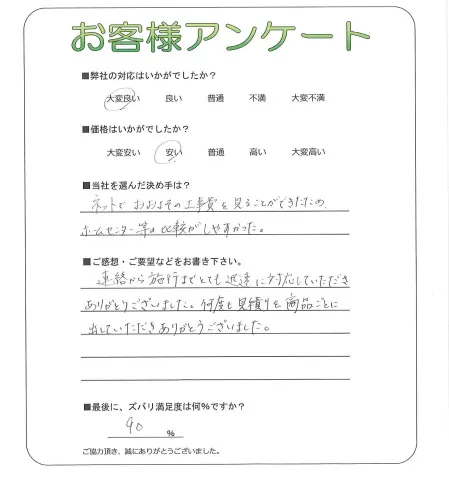 お客様アンケート
■弊社の対応はいかがでしたか？
大変良い 良い 普通 不満 大変不満
■価格はいかがでしたか？
大変安い 安い 普通 高い 大変高い
■当社を選んだ決め手は？
ネットで おおよその工事費を見ることができたため、
ホームセンター等は比較がしやすかった。
■ご感想・ご要望などをお書き下さい。
連絡から施行までとても迅速に対応していただき
ありがとうございました。何度も見積りを商品ごとに
出していただきありがとうございました。
■最後に、ズバリ満足度は何%ですか？
90 %
ご協力頂き、誠にありがとうございました。